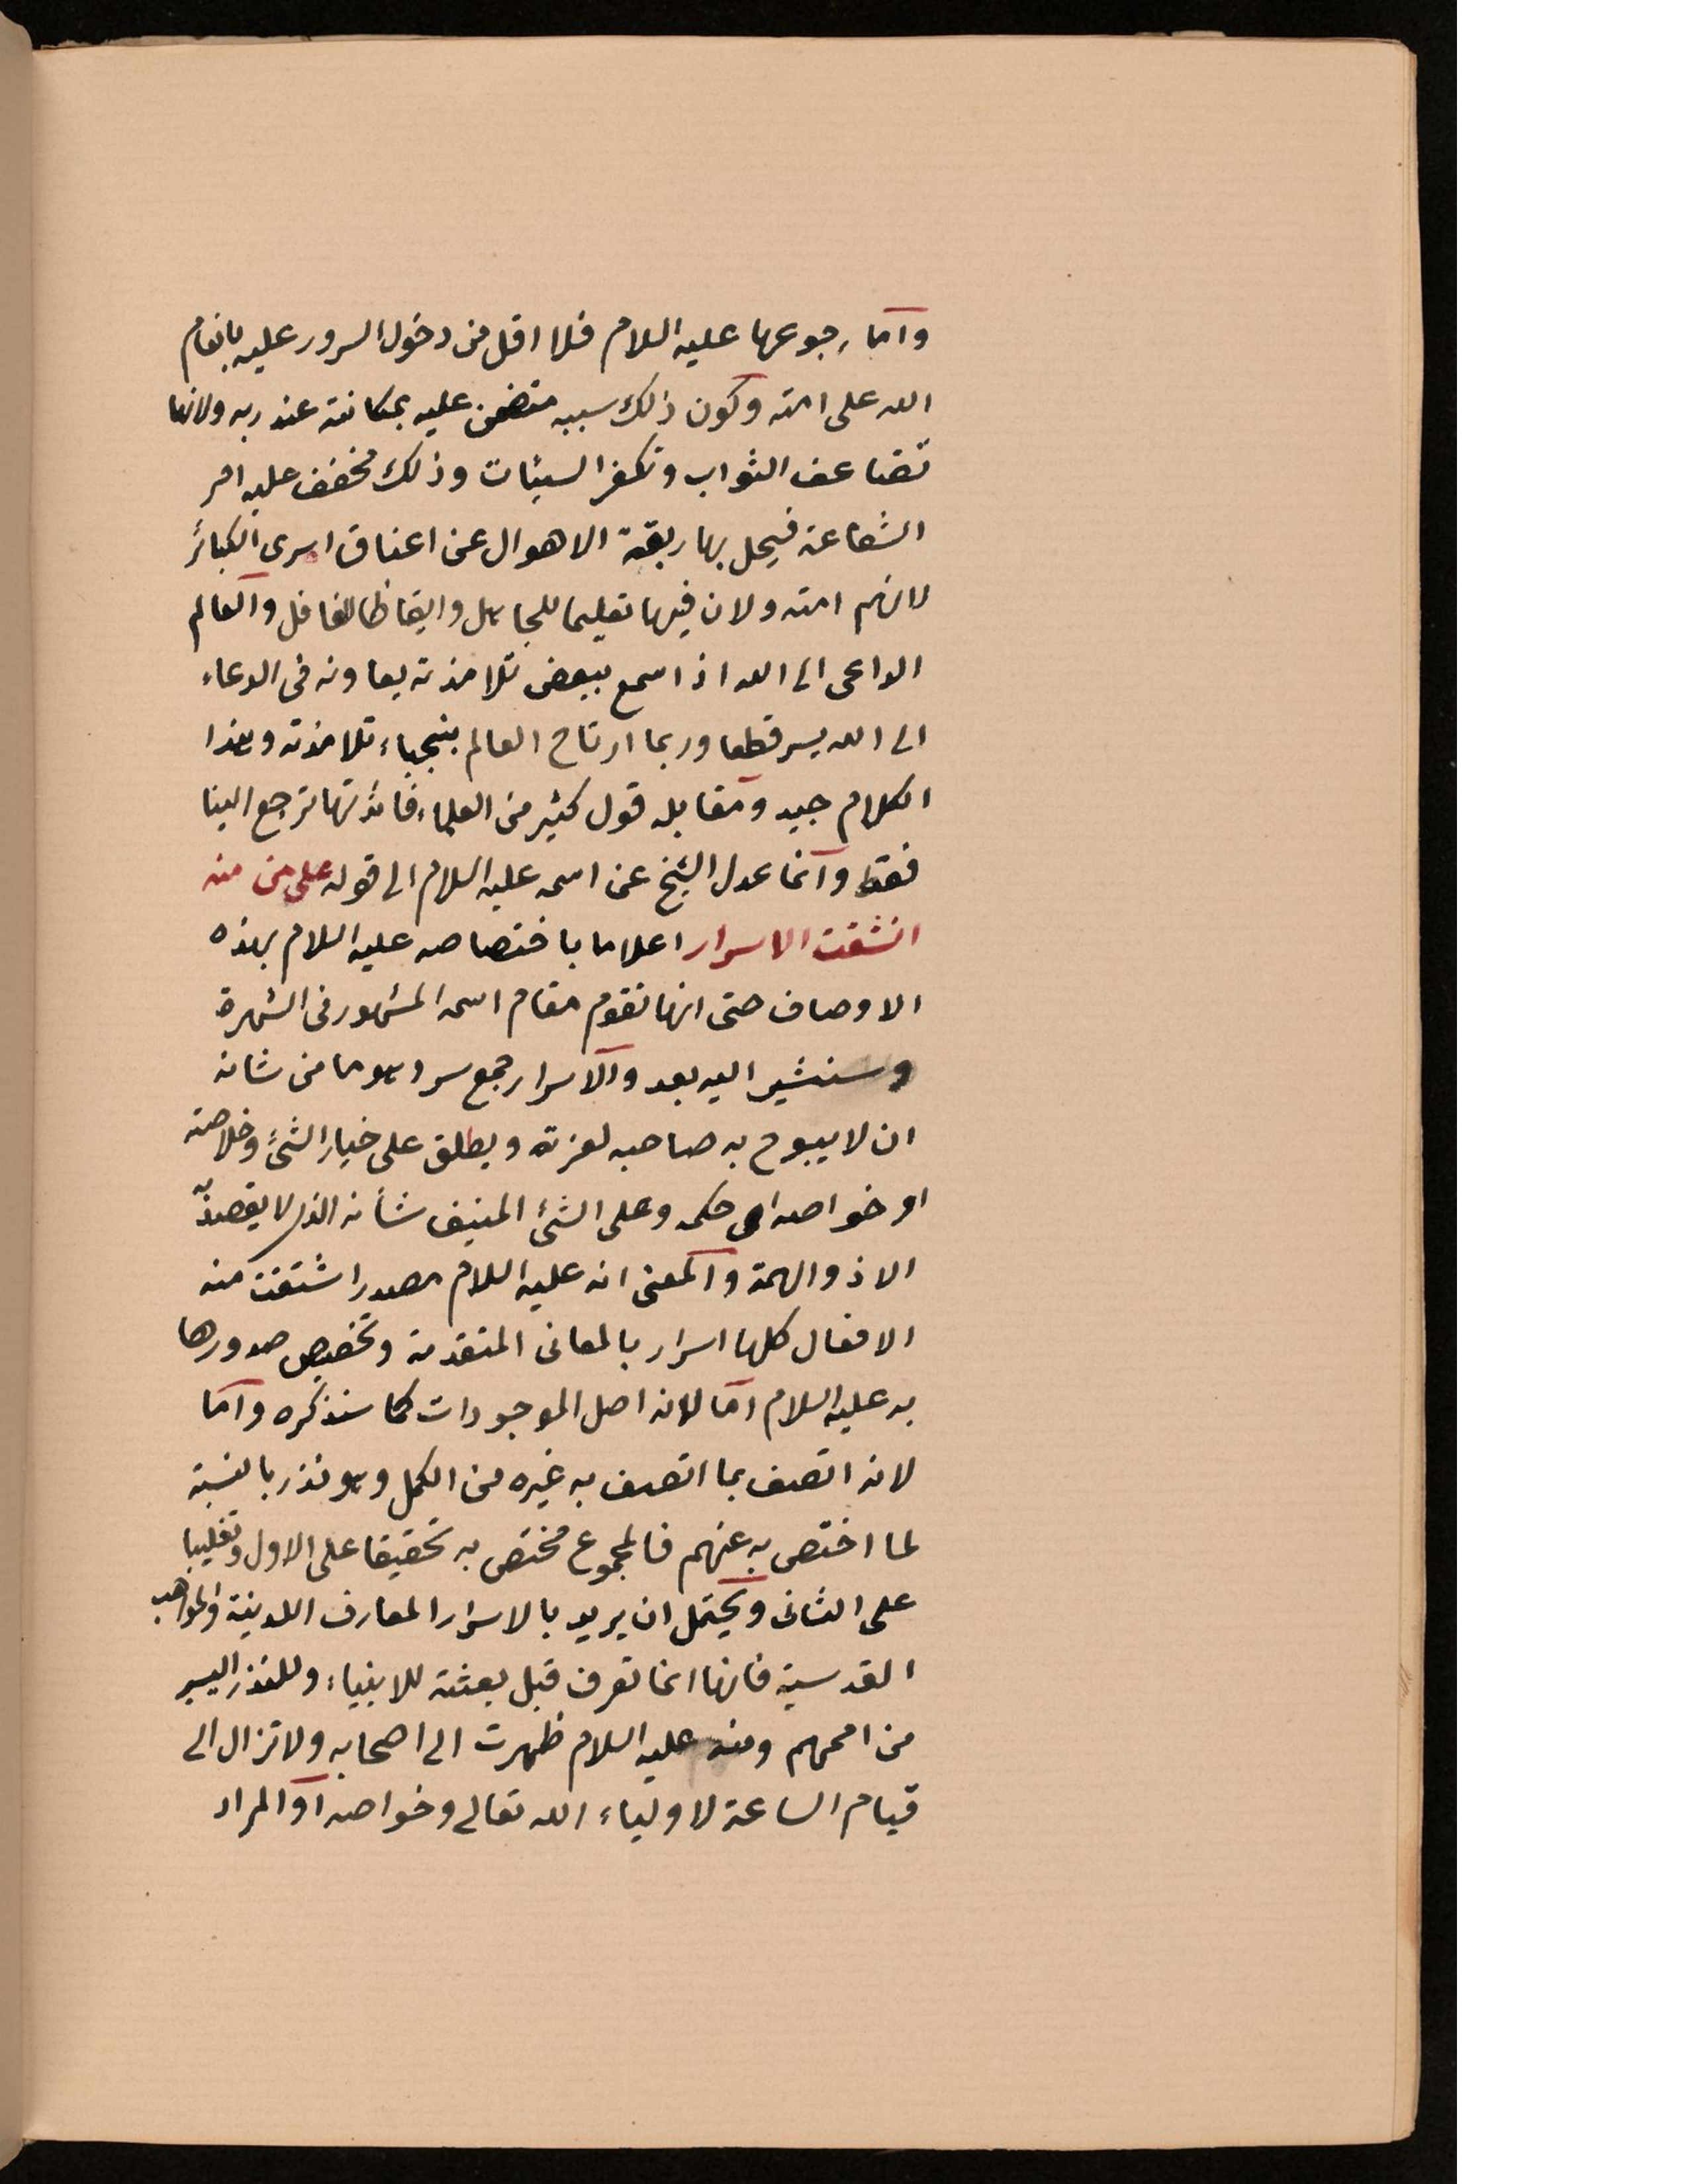 واما رجوعها عليه السلام فلا اقل من دخول السرور عليه بانعام
الله على امته وكون ذلك سببه متضمن عليه بمكانته عند ربه ولانها
تضاعف الثواب وتكفر السيئات وذلك مخفف عليه امر
الشفاعة فيحل بها ربقة الاهوال عن اعناق اسرى الكبائر
لانهم امته ولان فيها تعليما للجاهل وايقاظا للغافل والعالم
الداعى الى الله اذا سمع ببعض تلامذته يعاونه فى الدعاء
الى الله يسر قطعا وربما ارتاح العالم بنجباء تلامذته وهذا
الكلام جيد ومقابله قول كثير من العلماء فائدتها ترجع الينا
فقط وانما عدل الشيخ عن اسمه عليه السلام الى قوله على من منه
انشقت الاسرار اعلاما باختصاصه عليه السلام بهذه
الاوصاف حتى انها تقوم مقام اسمه المشهور فى الشهرة
وسنشير اليه بعد والاسرار جمع سر وهو ما من شانه
ان لا يبوح به صاحبه لعزته ويطلق على خيار الشئ وخلاصته
او خواصه اى حكمه وعلى الشئ المنيف شأنه الذى لا يقصده
الا ذو الهمة والمعنى انه عليه السلام مصدر اشتقت منه
الافعال كلها اسرار بالمعانى المتقدمة وتخصيص صدورها
به عليه السلام اما لانه اصل الموجودات كما سنذكره واما
لانه اتصف بما اتصف به غيره من الكمل وهو نذر بالنسبة
لما اختص به عنهم فالمجموع مختص به تحقيقا على الاول وتغليبا
على الثانى ويحتمل ان يريد بالاسرار المعارف اللدنية والمواهب
القدسية فانها انما تعرف قبل بعثته للانبياء وللنذر اليسير
من اممهم ومنه عليه السلام ظهرت الى اصحابه ولا تزال الى
قيام الساعة لاولياء الله تعالى وخواصه او المراد